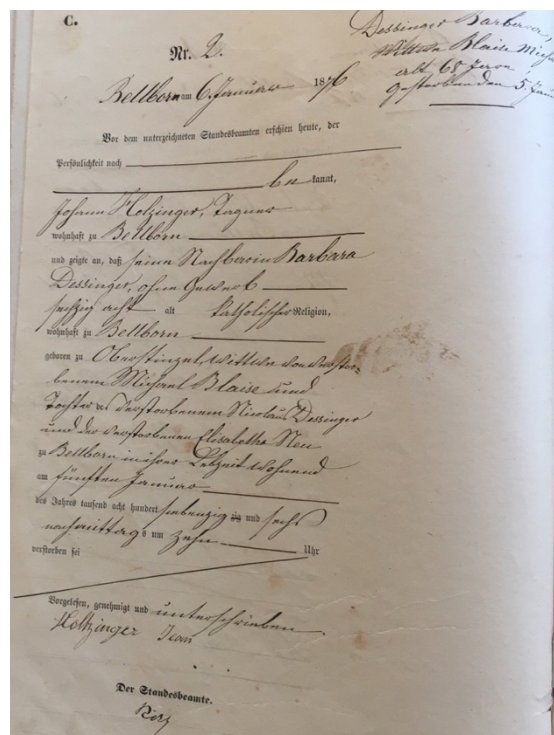 C.
Dessinger Barbara,
Wittwe Blaise
alt 68 Jaren,
gestorben den 5.
Nr. 2.
Bellborn am 6. Januar 1876
Vor dem unterzeichneten Standesbeamten erschien heute, der
Persönlichkeit nach
be kannt,
Johann Holzinger, Tagner
wohnhaft zu Bellborn
und zeigte an, daß seine Nachberin Barbara
Dessinger, ohne Gewerb
sechzig acht alt katholischer Religion,
wohnhaft zu Bellborn
geboren zu Oberstinzel, Wittwe von verstor-
benem Michael Blaise und
Tochter des verstorbenem Nicolaus Dessinger
und der verstorbenen Elisabetha Neu
zu Bellborn in ihrer Lebzeit wohnend
am fünften Januar
des Jahres tausend acht hundert siebenzig zig und sechs
nachmittags um zehn Uhr
verstorben sei
Vorgelesen, genehmigt und unterschrieben
Holtzinger Jean
Der Standesbeamte.